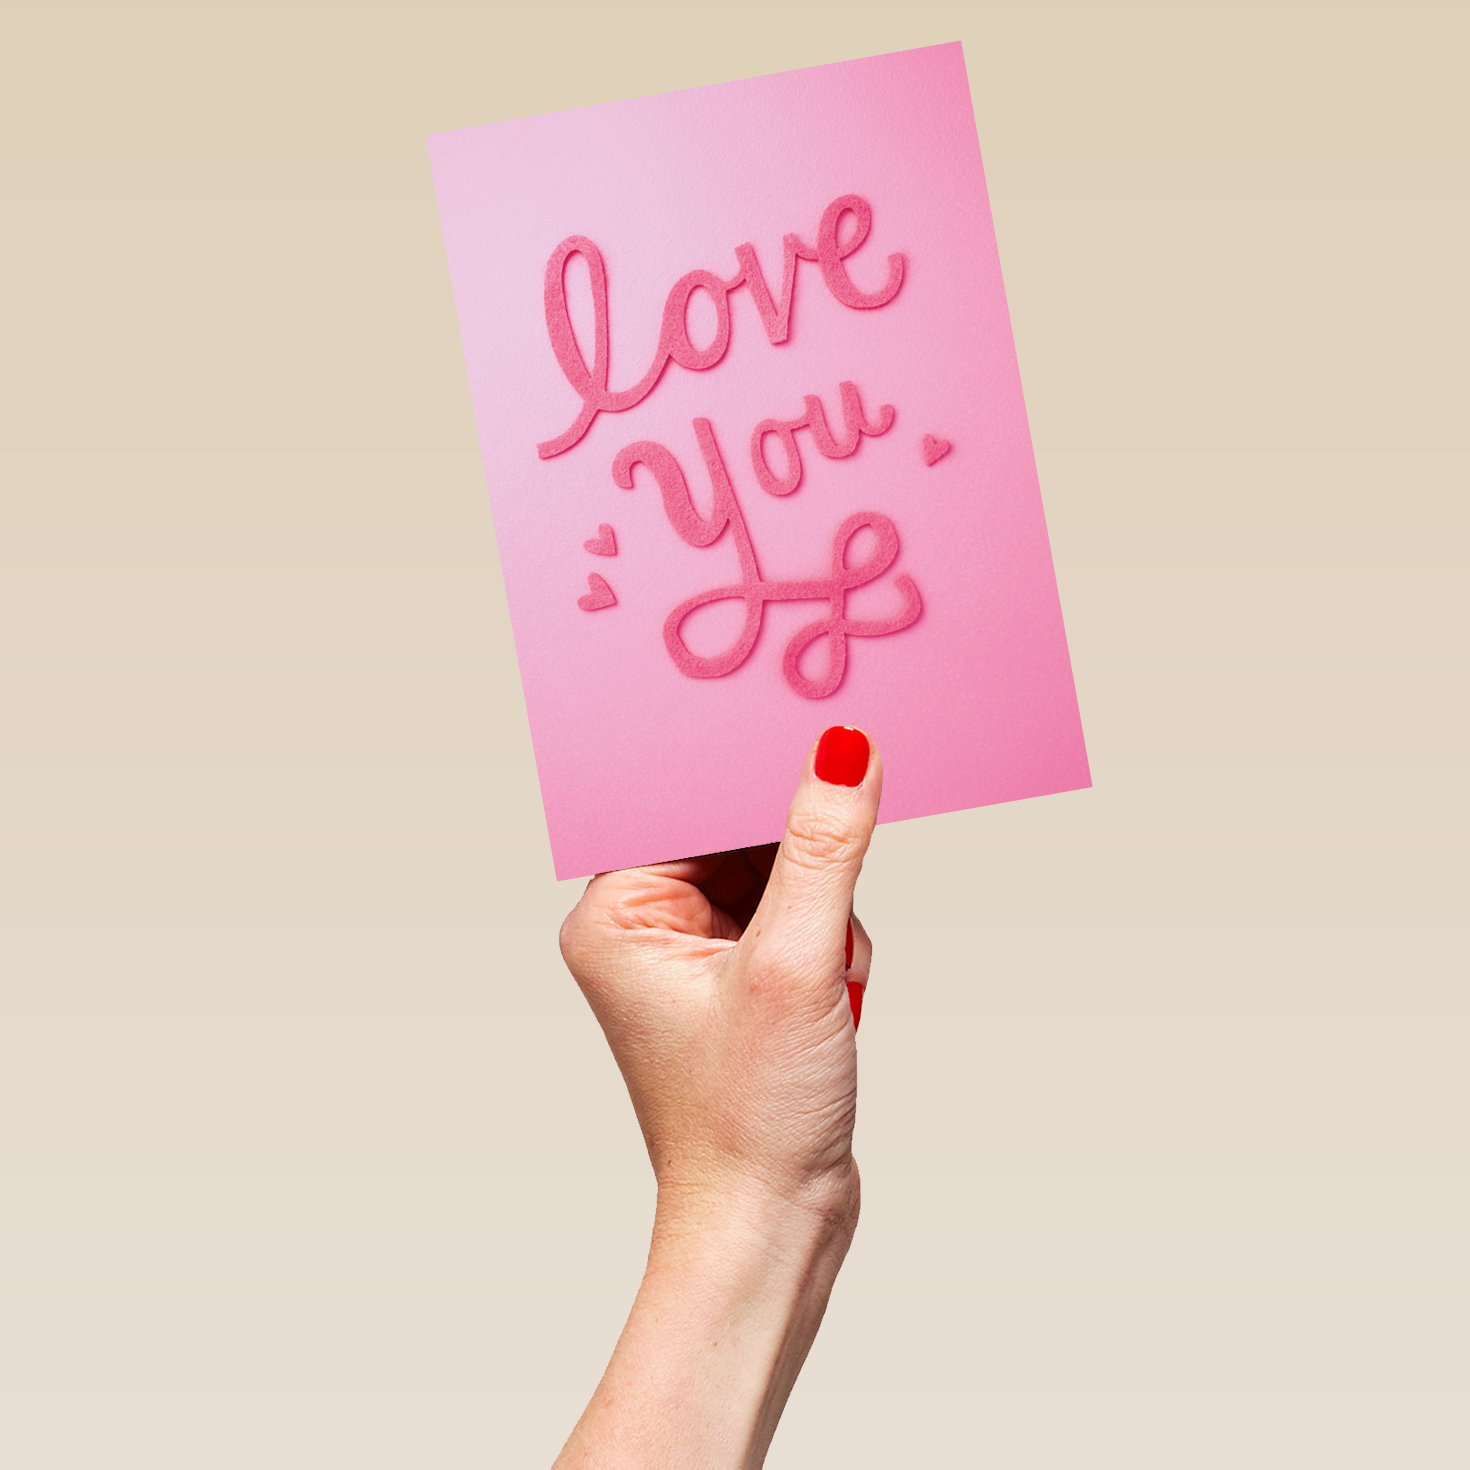 love
You